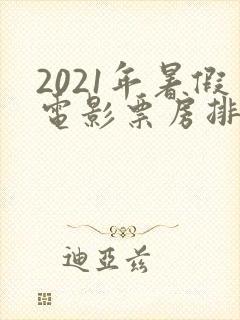 2021年暑假
电影票房排
迪亚兹